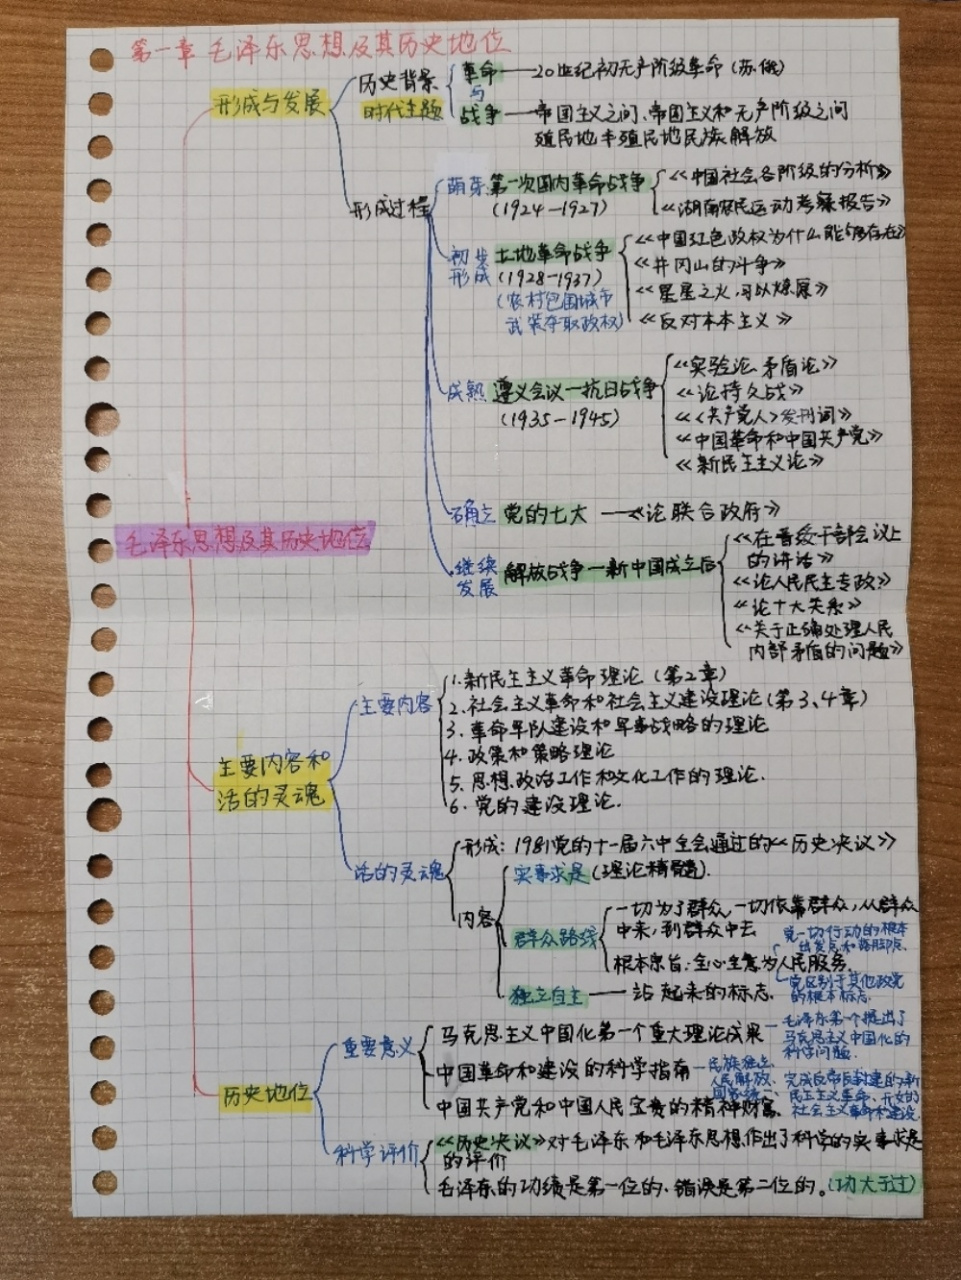 第一章 毛泽东思想及其历史地位
形成与发展
历史背景
时代主题
革命
与
战争
20世纪初无产阶级革命(苏俄)
帝国主义之间、帝国主义和无产阶级之间
殖民地半殖民地民族解放
形成过程
萌芽 第一次国内革命战争
(1924—1927)
《中国社会各阶级的分析》
《湖南农民运动考察报告》
初步
形成
土地革命战争
(1928-1937)
(农村包围城市
武装夺取政权)
《中国红色政权为什么能够存在》
《井冈山的斗争》
《星星之火,可以燎原》
《反对本本主义》
成熟 遵义会议—抗日战争
(1935—1945)
《实验论、矛盾论》
《论持久战》
《〈共产党人〉发刊词》
《中国革命和中国共产党》
《新民主主义论》
确立 党的七大 —《论联合政府》
继续
发展
解放战争—新中国成立后
《在晋绥干部会议上
的讲话》
《论人民民主专政》
《论十大关系》
《关于正确处理人民
内部矛盾的问题》
毛泽东思想及其历史地位
主要内容和
活的灵魂
主要内容
1.新民主主义革命理论(第2章)
2.社会主义革命和社会主义建设理论(第3、4章)
3.革命军队建设和军事战略的理论
4.政策和策略理论
5.思想政治工作和文化工作的理论.
6.党的建设理论.
活的灵魂
形成:1981党的十一届六中全会通过的《历史决议》
内容
实事求是(理论精髓).
群众路线
一切为了群众,一切依靠群众,从群众
中来,到群众中去
党一切行动的根本
出发点和落脚点.
根本宗旨:全心全意为人民服务.
党区别于其他政党
的根本标志.
独立自主 — 站起来的标志.
历史地位
重要意义
马克思主义中国化第一个重大理论成果
毛泽东第一个提出了
马克思主义中国化的
科学问题.
中国革命和建设的科学指南
民族独立、
人民解放、
完成反帝反封建的新
民主主义革命、开始的
社会主义革命和建设.
中国共产党和中国人民宝贵的精神财富.
科学评价
《历史决议》对毛泽东和毛泽东思想作出了科学的实事求是
的评价
毛泽东的功绩是第一位的,错误是第二位的。(功大于过)